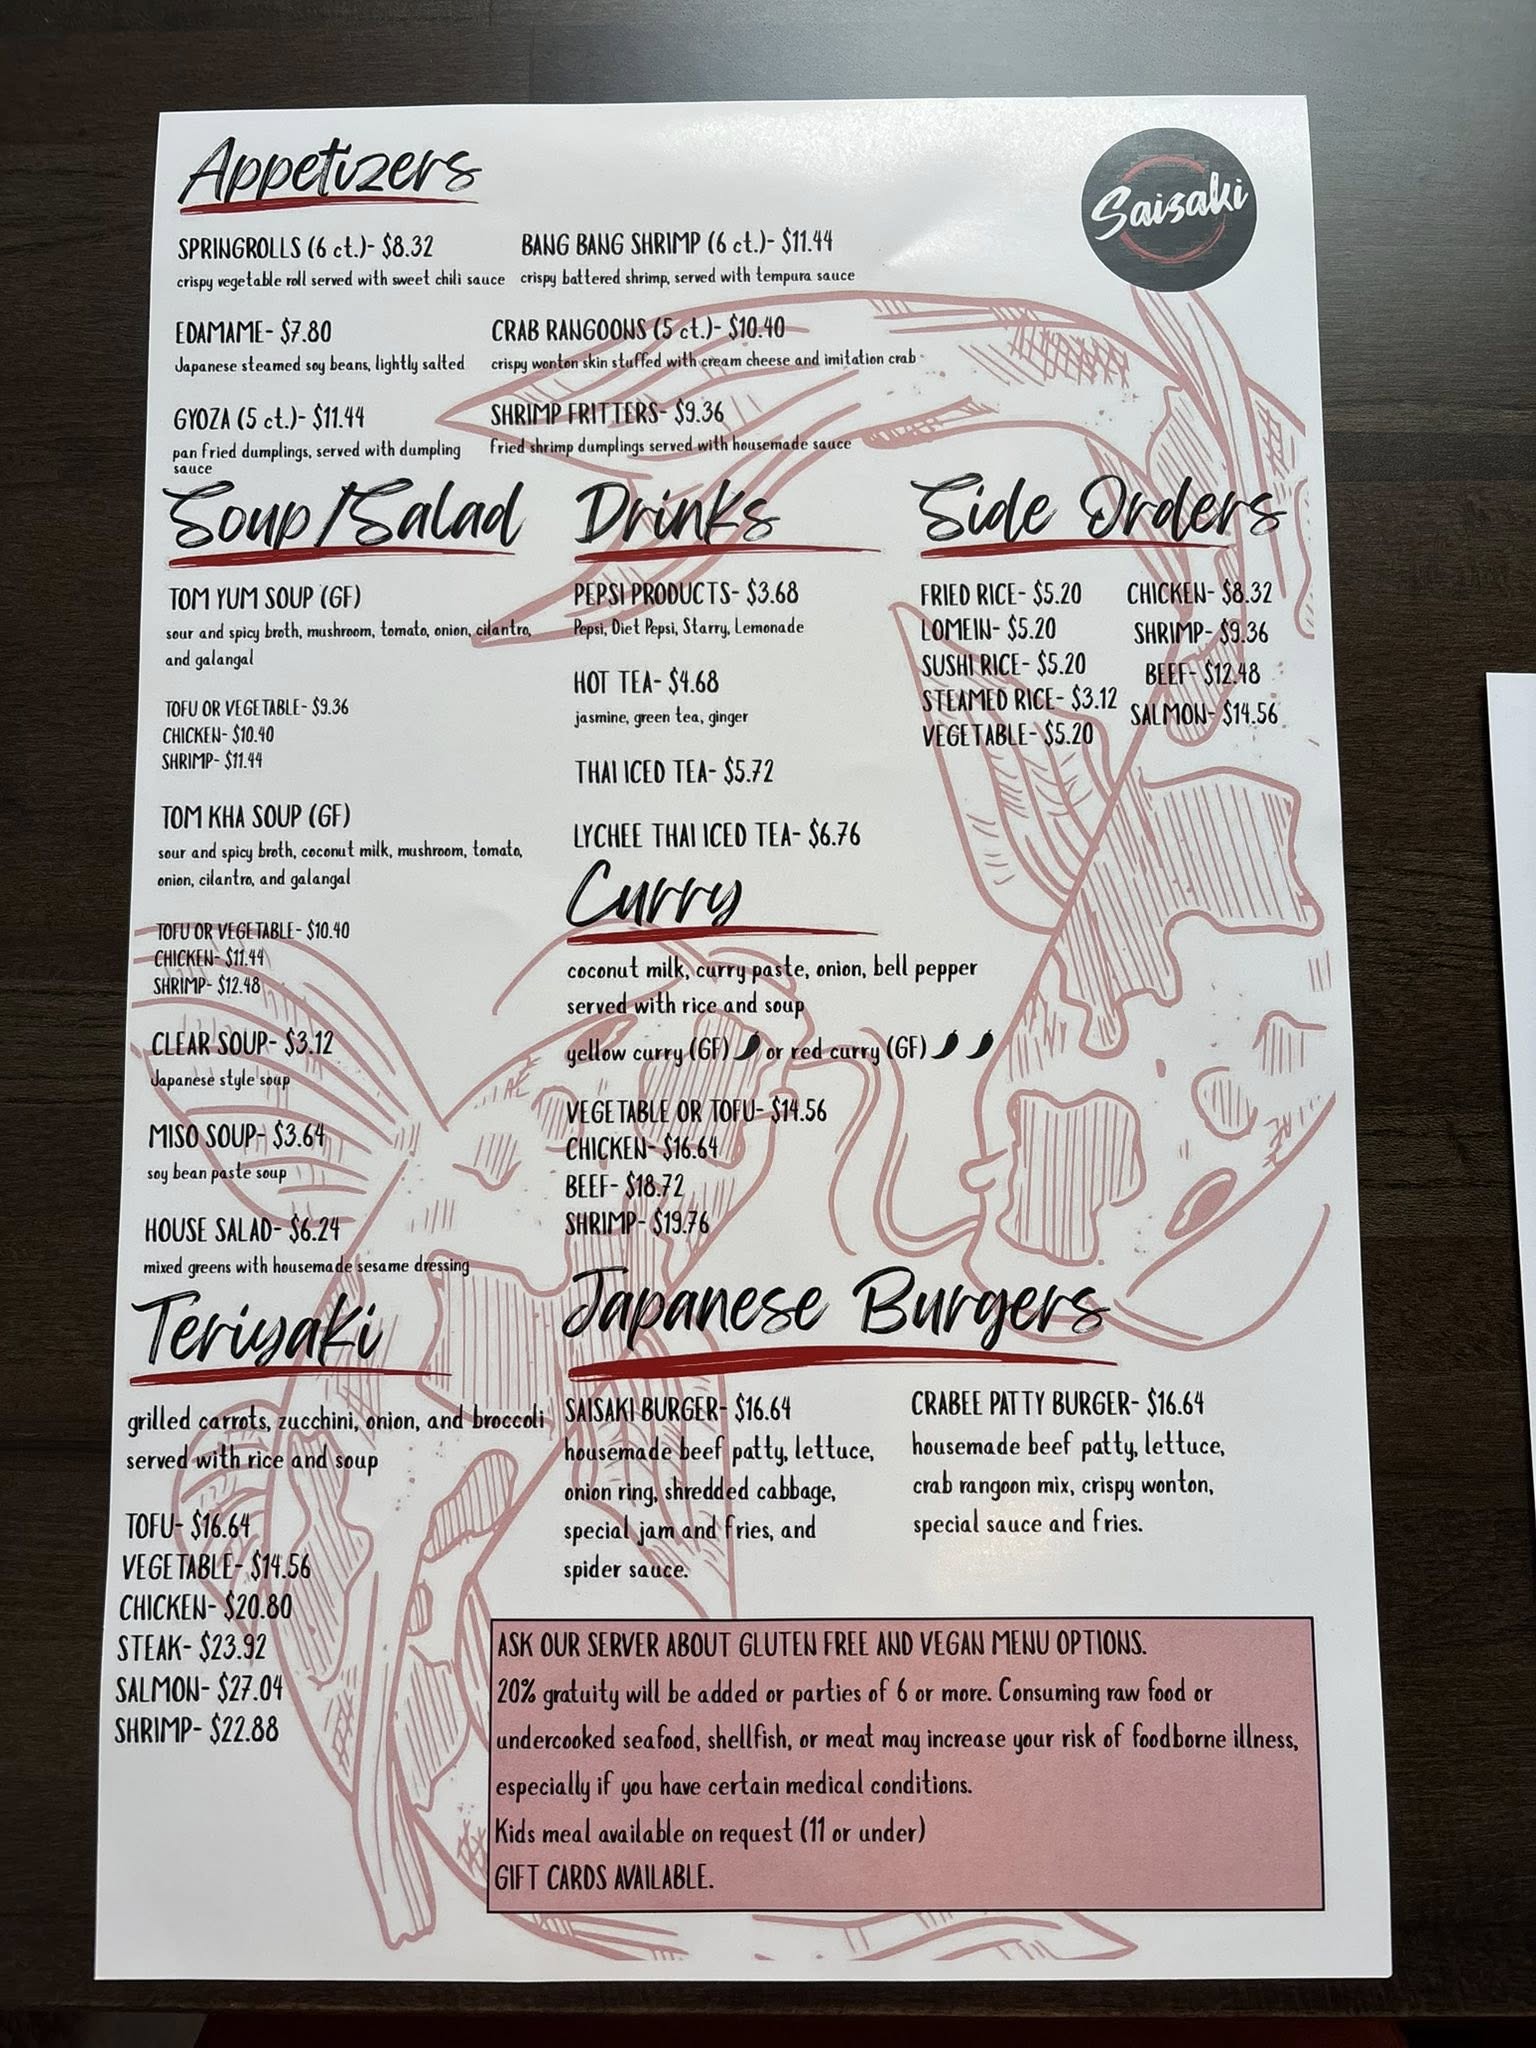 Appetizers
Saisaki
SPRINGROLLS (6 ct.)- $8.32
crispy vegetable roll served with sweet chili sauce
BANG BANG SHRIMP (6 ct.)- $11.44
crispy battered shrimp, served with tempura sauce
EDAMAME- $7.80
Japanese steamed soy beans, lightly salted
CRAB RANGOONS (5 ct.)- $10.40
crispy wonton skin stuffed with cream cheese and imitation crab
GYOZA (5 ct.)- $11.44
pan fried dumplings, served with dumpling
sauce
SHRIMP FRITTERS- $9.36
fried shrimp dumplings served with housemade sauce
Soup/Salad
TOM YUM SOUP (GF)
sour and spicy broth, mushroom, tomato, onion, cilantro,
and galangal
TOFU OR VEGETABLE- $9.36
CHICKEN- $10.40
SHRIMP- $11.44
TOM KHA SOUP (GF)
sour and spicy broth, coconut milk, mushroom, tomato,
onion, cilantro, and galangal
TOFU OR VEGETABLE- $10.40
CHICKEN- $11.44
SHRIMP- $12.48
CLEAR SOUP- $3.12
Japanese style soup
MISO SOUP- $3.64
soy bean paste soup
HOUSE SALAD- $6.24
mixed greens with housemade sesame dressing
Drinks
PEPSI PRODUCTS- $3.68
Pepsi, Diet Pepsi, Starry, Lemonade
HOT TEA- $4.68
jasmine, green tea, ginger
THAI ICED TEA- $5.72
LYCHEE THAI ICED TEA- $6.76
Side Orders
FRIED RICE- $5.20
LOMEIN- $5.20
SUSHI RICE- $5.20
STEAMED RICE- $3.12
VEGETABLE- $5.20
CHICKEN- $8.32
SHRIMP- $9.36
BEEF- $12.48
SALMON- $14.56
Curry
coconut milk, curry paste, onion, bell pepper
served with rice and soup
yellow curry (GF) or red curry (GF)
VEGETABLE OR TOFU- $14.56
CHICKEN- $16.64
BEEF- $18.72
SHRIMP- $19.76
Teriyaki
grilled carrots, zucchini, onion, and broccoli
served with rice and soup
TOFU- $16.64
VEGETABLE- $14.56
CHICKEN- $20.80
STEAK- $23.92
SALMON- $27.04
SHRIMP- $22.88
Japanese Burgers
SAISAKI BURGER- $16.64
housemade beef patty, lettuce,
onion ring, shredded cabbage,
special jam and fries, and
spider sauce.
CRABEE PATTY BURGER- $16.64
housemade beef patty, lettuce,
crab rangoon mix, crispy wonton,
special sauce and fries.
ASK OUR SERVER ABOUT GLUTEN FREE AND VEGAN MENU OPTIONS.
20% gratuity will be added or parties of 6 or more. Consuming raw food or
undercooked seafood, shellfish, or meat may increase your risk of foodborne illness,
especially if you have certain medical conditions.
Kids meal available on request (11 or under)
GIFT CARDS AVAILABLE.